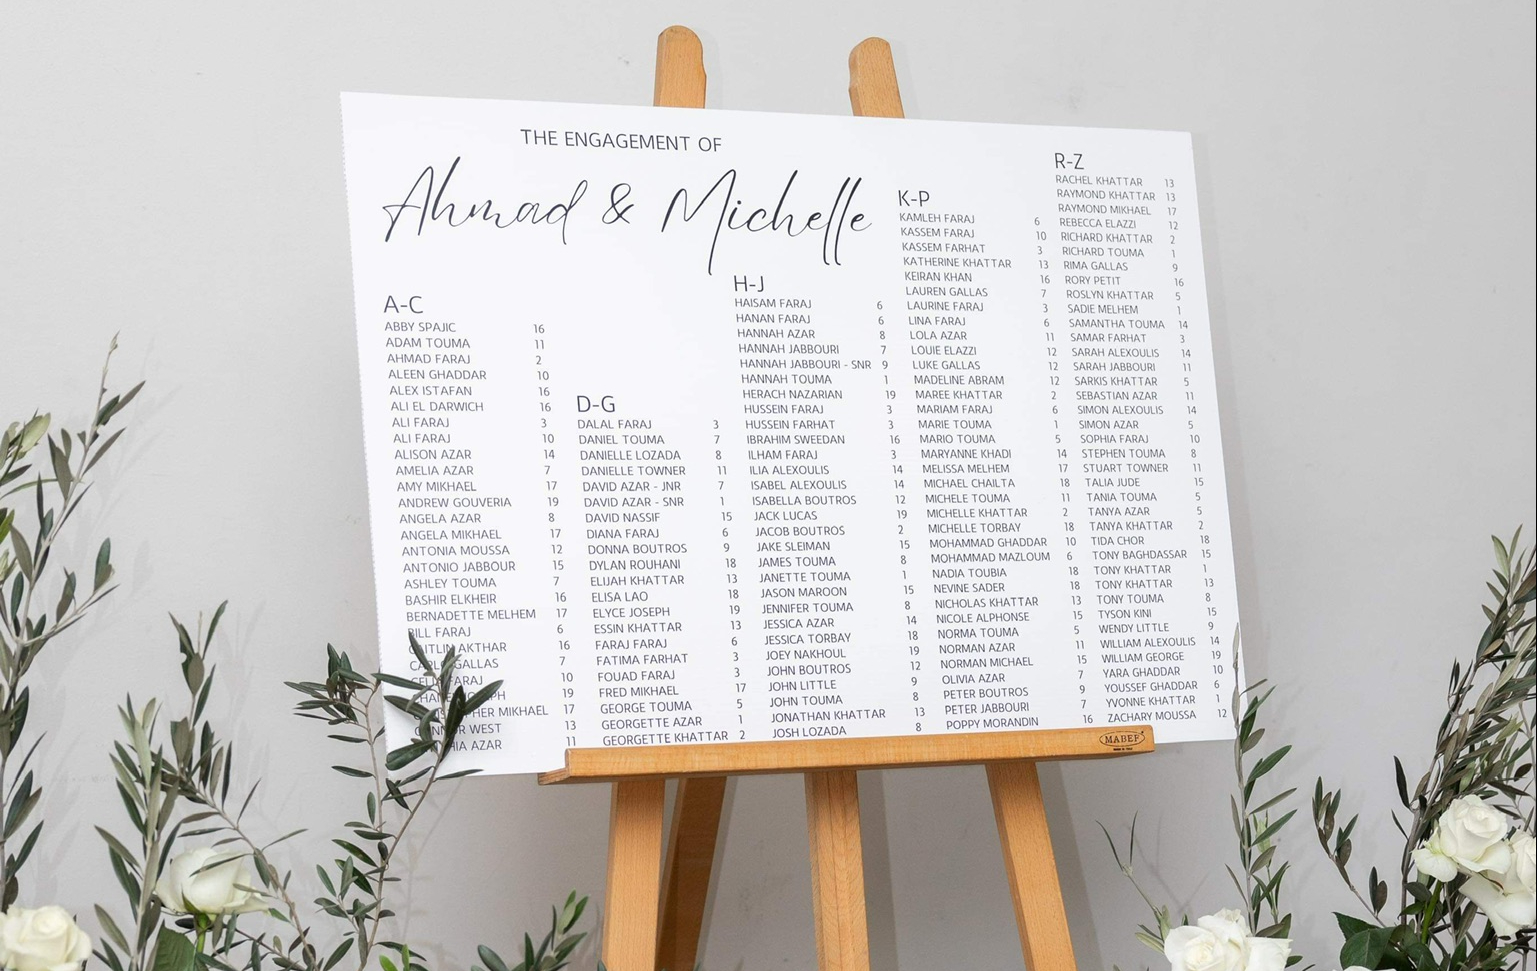 THE ENGAGEMENT OF
Ahmad & Michelle
A-C
ABBY SPAJIC 16
ADAM TOUMA 11
AHMAD FARAJ 2
ALEEN GHADDAR 10
ALEX ISTAFAN 16
ALI EL DARWICH 16
ALI FARAJ 3
ALI FARAJ 10
ALISON AZAR 14
AMELIA AZAR 7
AMY MIKHAEL 17
ANDREW GOUVERIA 19
ANGELA AZAR 8
ANGELA MIKHAEL 17
ANTONIA MOUSSA 12
ANTONIO JABBOUR 15
ASHLEY TOUMA 7
BASHIR ELKHEIR 16
BERNADETTE MELHEM 17
BILL FARAJ 6
CAITLIN AKTHAR 16
CARLO GALLAS 7
FARAJ 10
19
MIKHAEL 17
CONNOR WEST 13
AZAR 11
D-G
DALAL FARAJ 3
DANIEL TOUMA 7
DANIELLE LOZADA 8
DANIELLE TOWNER 11
DAVID AZAR - JNR 7
DAVID AZAR - SNR 1
DAVID NASSIF 15
DIANA FARAJ 6
DONNA BOUTROS 9
DYLAN ROUHANI 18
ELIJAH KHATTAR 13
ELISA LAO 18
ELYCE JOSEPH 19
ESSIN KHATTAR 13
FARAJ FARAJ 6
FATIMA FARHAT 3
FOUAD FARAJ 3
FRED MIKHAEL 17
GEORGE TOUMA 5
GEORGETTE AZAR 1
GEORGETTE KHATTAR 2
H-J
HAISAM FARAJ 6
HANAN FARAJ 6
HANNAH AZAR 8
HANNAH JABBOURI 7
HANNAH JABBOURI - SNR 9
HANNAH TOUMA 1
HERACH NAZARIAN 19
HUSSEIN FARAJ 3
HUSSEIN FARHAT 3
IBRAHIM SWEEDAN 16
ILHAM FARAJ 3
ILIA ALEXOULIS 14
ISABEL ALEXOULIS 14
ISABELLA BOUTROS 12
JACK LUCAS 19
JACOB BOUTROS 2
JAKE SLEIMAN 15
JAMES TOUMA 8
JANETTE TOUMA 1
JASON MAROON 15
JENNIFER TOUMA 8
JESSICA AZAR 14
JESSICA TORBAY 18
JOEY NAKHOUL 19
JOHN BOUTROS 12
JOHN LITTLE 9
JOHN TOUMA 8
JONATHAN KHATTAR 13
JOSH LOZADA 8
K-P
KAMLEH FARAJ 6
KASSEM FARAJ 10
KASSEM FARHAT 3
KATHERINE KHATTAR 13
KEIRAN KHAN 16
LAUREN GALLAS 7
LAURINE FARAJ 3
LINA FARAJ 6
LOLA AZAR 11
LOUIE ELAZZI 12
LUKE GALLAS 12
MADELINE ABRAM 12
MAREE KHATTAR 2
MARIAM FARAJ 6
MARIE TOUMA 1
MARIO TOUMA 5
MARYANNE KHADI 14
MELISSA MELHEM 17
MICHAEL CHAILTA 18
MICHELE TOUMA 11
MICHELLE KHATTAR 2
MICHELLE TORBAY 18
MOHAMMAD GHADDAR 10
MOHAMMAD MAZLOUM 6
NADIA TOUBIA 18
NEVINE SADER 18
NICHOLAS KHATTAR 13
NICOLE ALPHONSE
NORMA TOUMA 5
NORMAN AZAR 11
NORMAN MICHAEL 15
OLIVIA AZAR 7
PETER BOUTROS 9
PETER JABBOURI 7
POPPY MORANDIN 16
R-Z
RACHEL KHATTAR 13
RAYMOND KHATTAR 13
RAYMOND MIKHAEL 17
REBECCA ELAZZI 12
RICHARD KHATTAR 2
RICHARD TOUMA 1
RIMA GALLAS 9
RORY PETIT 16
ROSLYN KHATTAR 5
SADIE MELHEM 1
SAMANTHA TOUMA 14
SAMAR FARHAT 3
SARAH ALEXOULIS 14
SARAH JABBOURI 11
SARKIS KHATTAR 5
SEBASTIAN AZAR 11
SIMON ALEXOULIS 14
SIMON AZAR 5
SOPHIA FARAJ 10
STEPHEN TOUMA 8
STUART TOWNER 11
TALIA JUDE 15
TANIA TOUMA 5
TANYA AZAR 5
TANYA KHATTAR 2
TIDA CHOR 18
TONY BAGHDASSAR 15
TONY KHATTAR 1
TONY KHATTAR 13
TONY TOUMA 8
TYSON KINI 15
WENDY LITTLE 9
WILLIAM ALEXOULIS 14
WILLIAM GEORGE 19
YARA GHADDAR 10
YOUSSEF GHADDAR 6
YVONNE KHATTAR 1
ZACHARY MOUSSA 12
MABEF